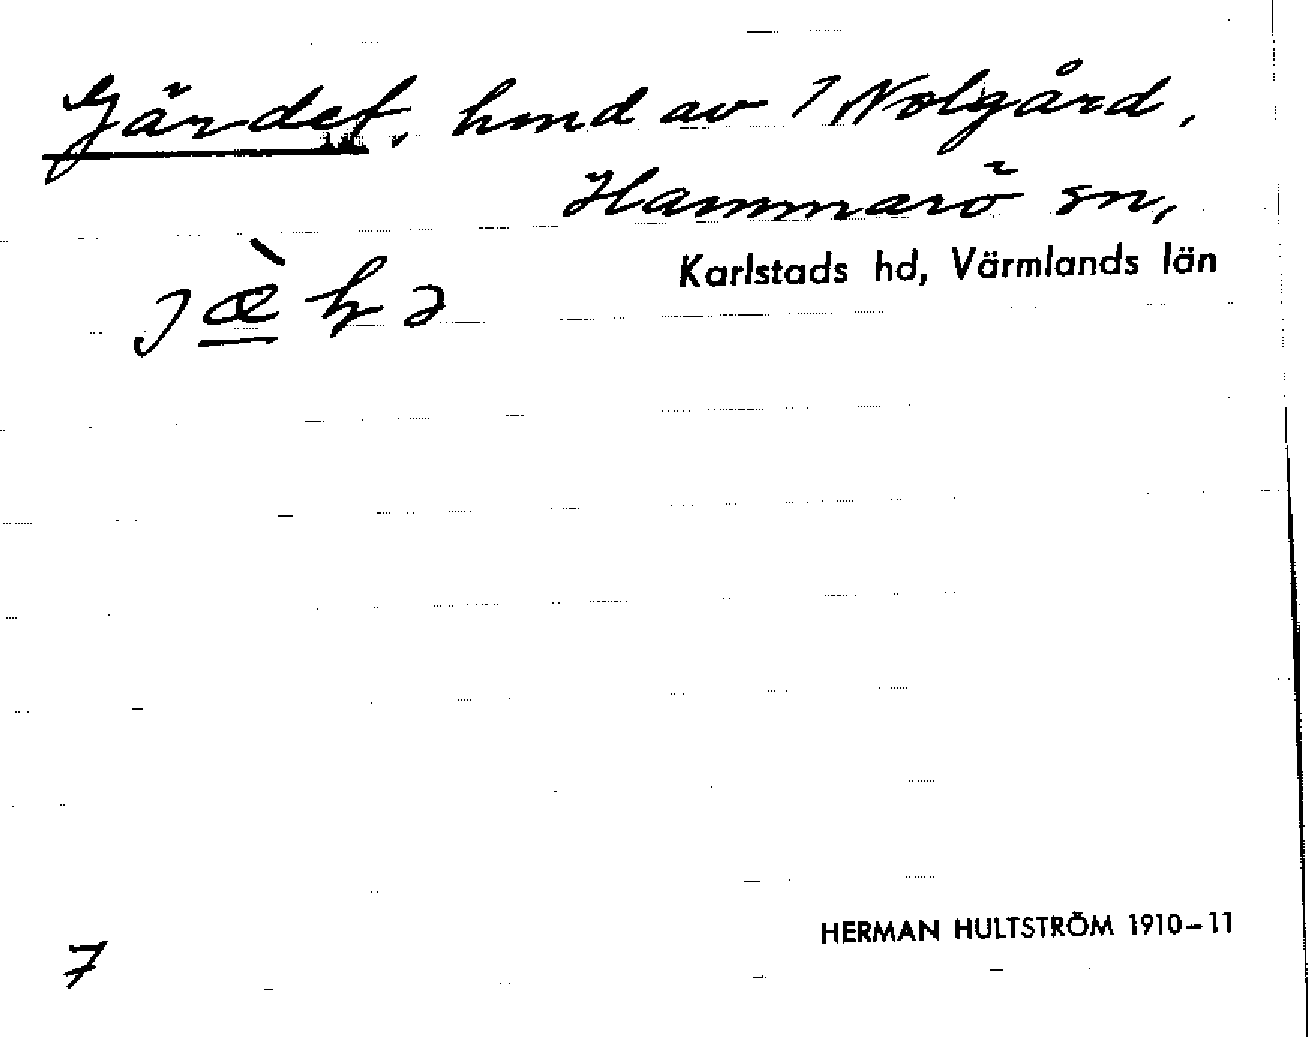 Gärdet, hmd av 1 Nolgård,
Hammarö sn,
Karlstads hd, Värmlands län
HERMAN HULTSTRÖM 1910–11
7